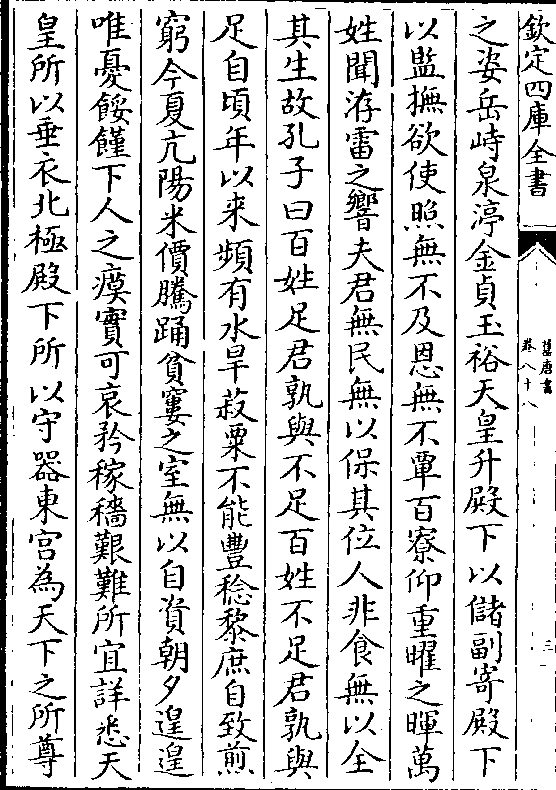 欽定四庫全書
舊唐書
卷八十八
三
之姿岳峙泉渟金貞玉裕天皇升殿下以儲副寄殿下
以監撫欲使照無不及恩無不覃百寮仰重曜之暉萬
姓聞洊雷之響夫君無民無以保其位人非食無以全
其生故孔子曰百姓足君孰與不足百姓不足君孰與
足自頃年以来頻有水旱菽粟不能豐稔黎庶自致煎
窮今夏亢陽米價騰踊貧窶之室無以自資朝夕遑遑
唯憂餒饉下人之瘼實可哀矜稼穡艱難所宜詳悉天
皇所以垂衣北極殿下所以守器東宮為天下之所尊